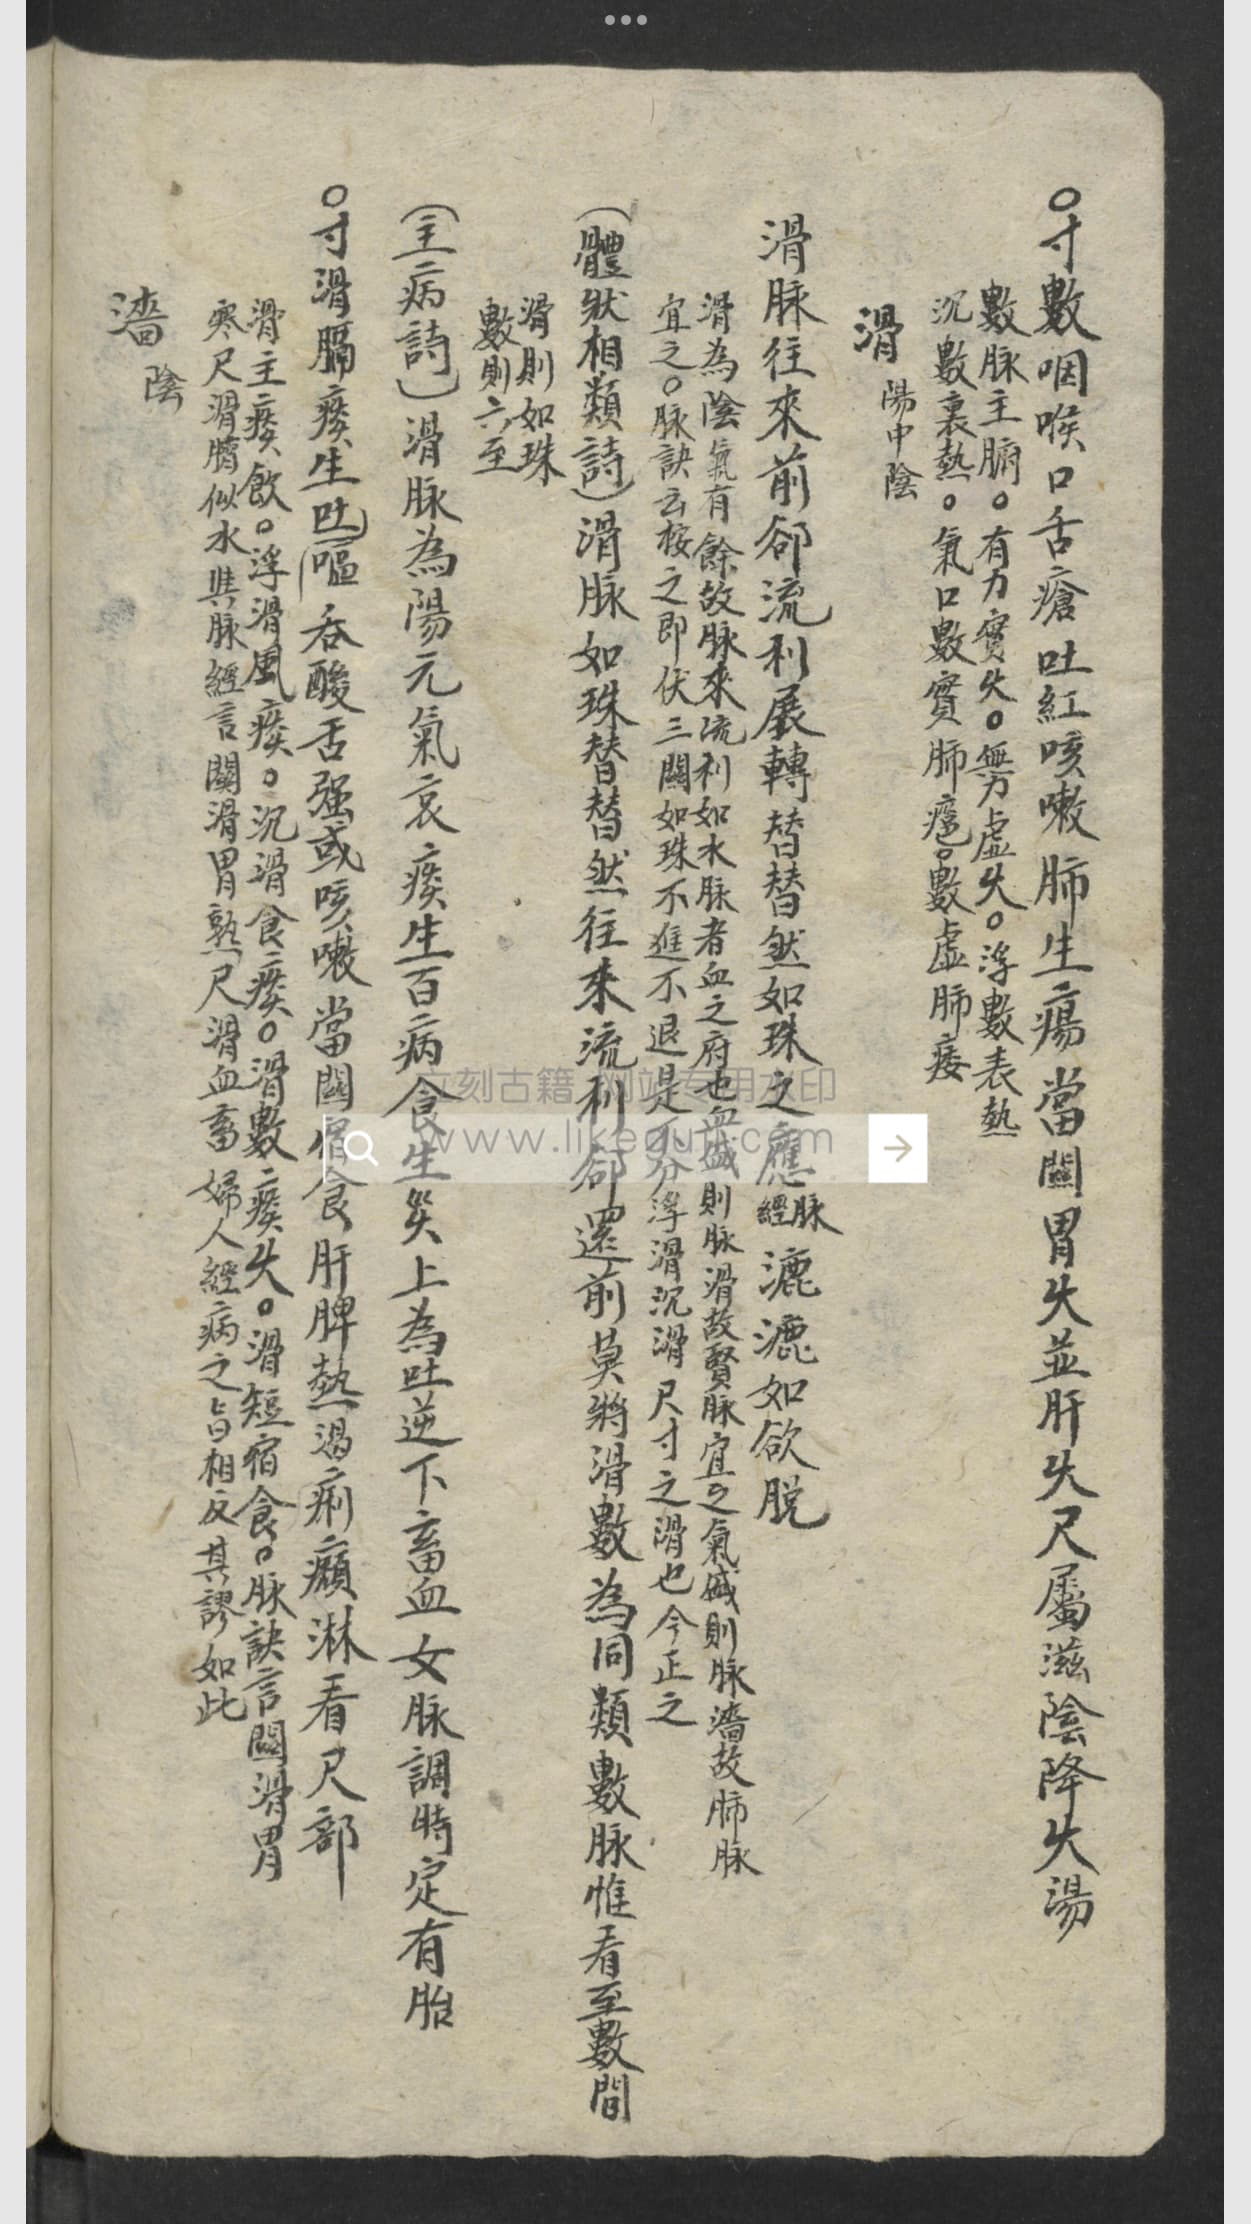 ○寸數咽喉口舌瘡吐紅咳嗽肺生瘍當關胃火並肝火尺屬滋陰降火湯
數脉主腑○有力實火○無力虛火○浮數表熱
沉數裏熱○氣口數實肺癰○數虛肺痿
滑 陽中陰
滑脉往來前郤流利展轉替替然如珠之應脉經漉漉如欲脱
滑為陰氣有餘故脉來流利如水脉者血之府也血盛則脉滑故賢脉宜之氣盛則脉濇故肺脉
宜之○脉訣云按之即伏三關如珠不進不退是不分浮滑沉滑尺寸之滑也今正之
(體狀相類詩)滑脉如珠替替然往來流利郤還前莫將滑數為同類數脉惟看至數間
滑則如珠
數則六至
(主病詩)滑脉為陽元氣衰痰生百病食生災上為吐逆下畜血女脉調時定有胎
○寸滑膈痰生吐嘔吞酸舌强或咳嗽當關宿食肝脾熱渴痢癲淋看尺部
滑主痰飲○浮滑風痰○沉滑食痰○滑數痰火○滑短宿食○脉訣言關滑胃
寒尺滑臍似水與脉經言關滑胃熱尺滑血畜婦人經病之旨相反其謬如此
濇 陰
立刻古籍 网站专用水印
www.likeguji.com